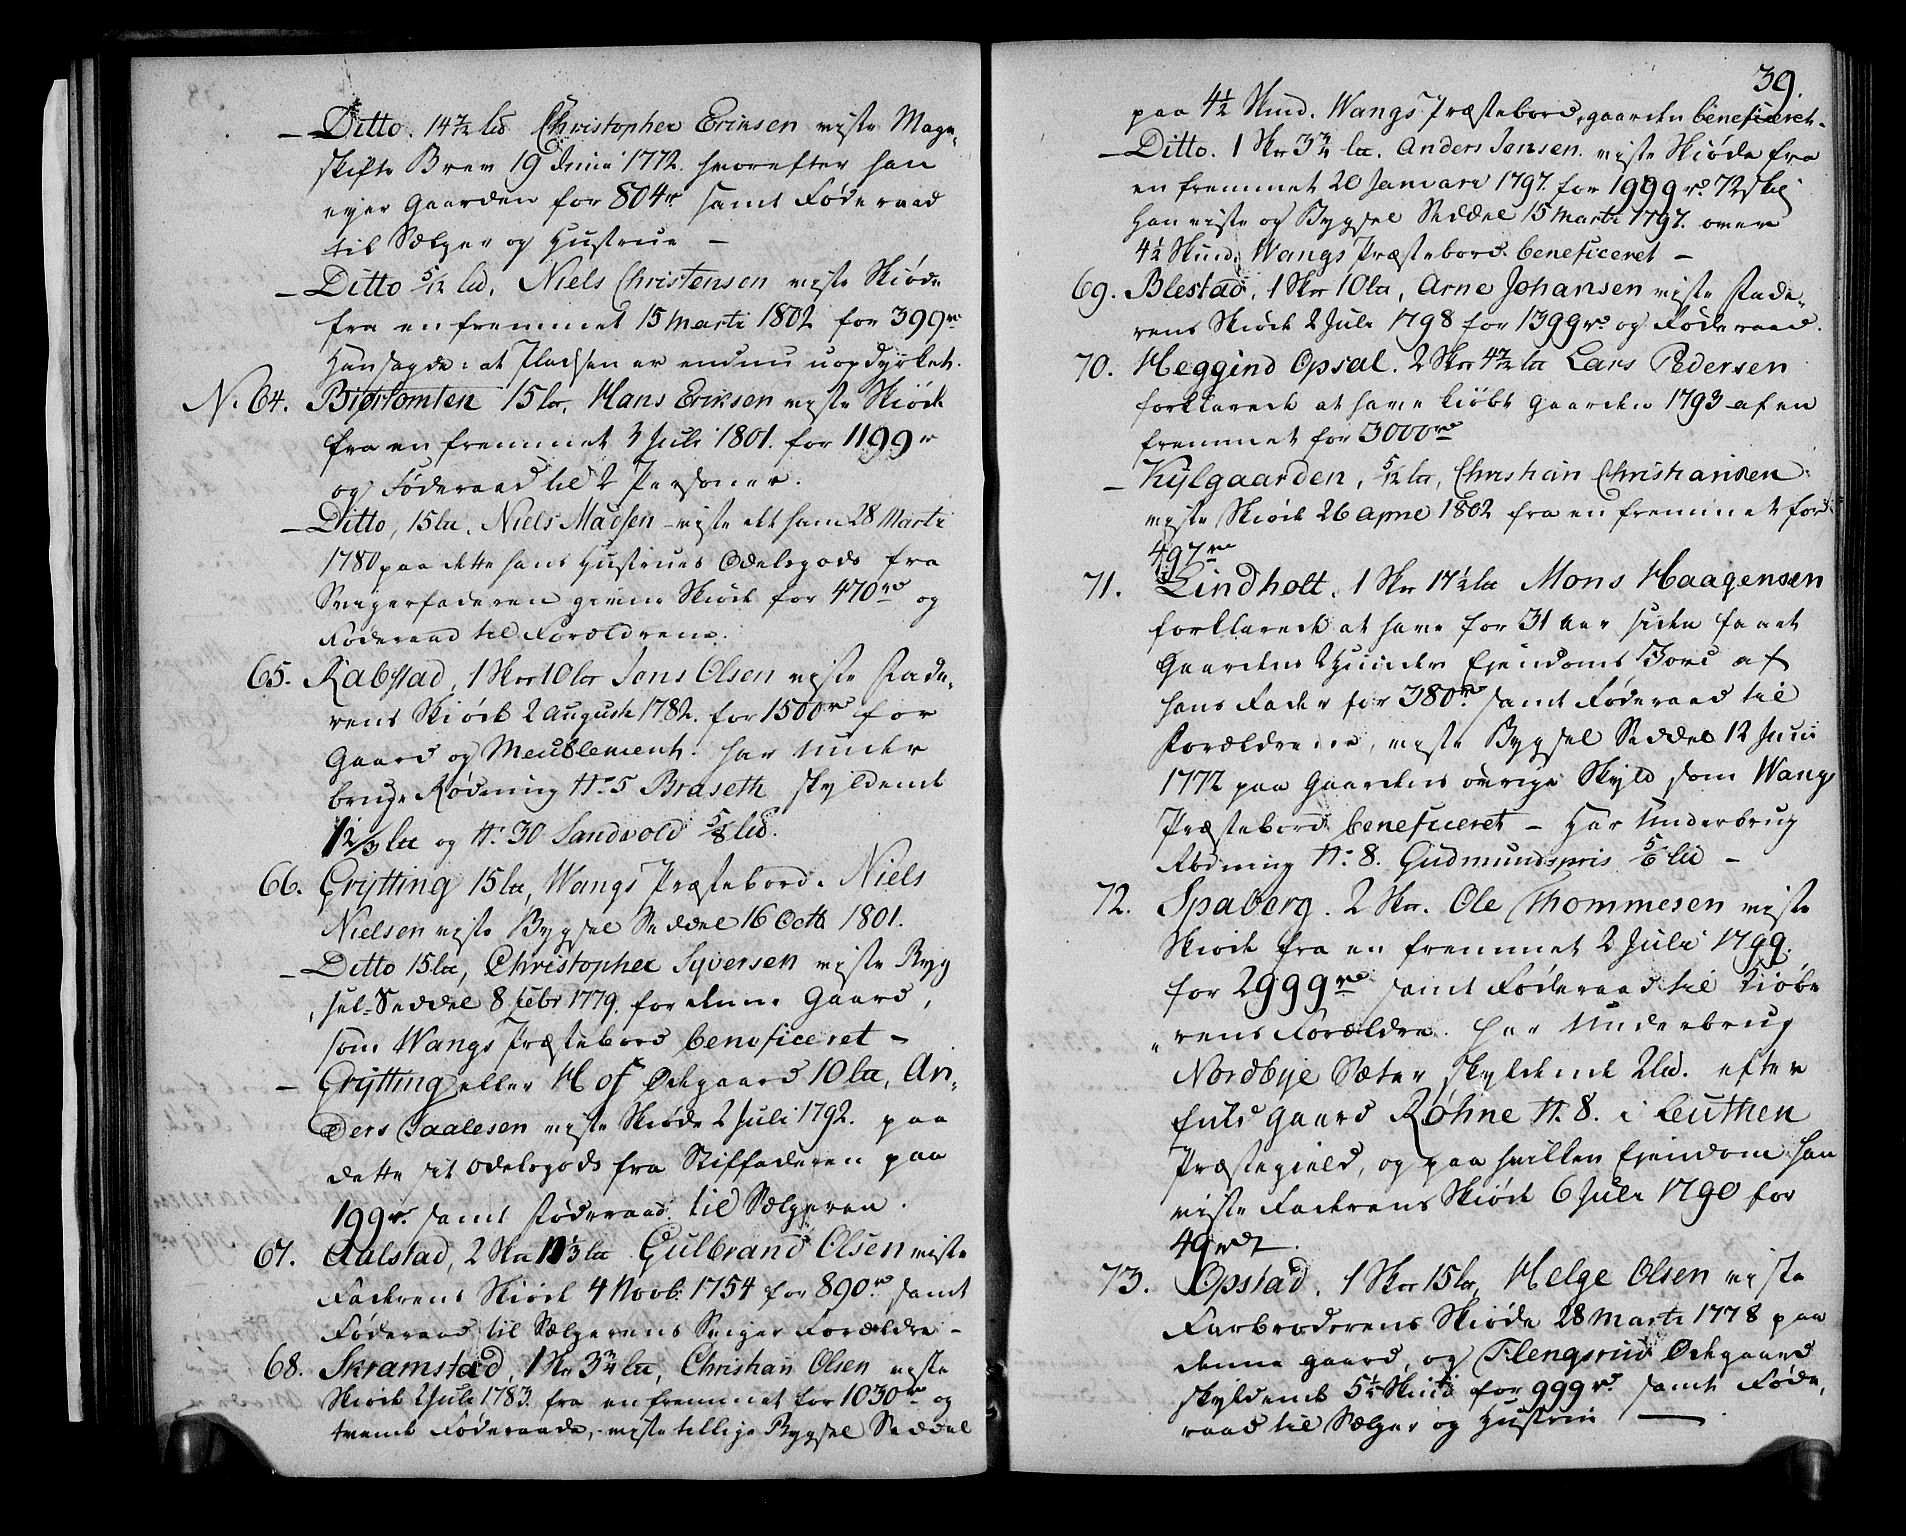 — Ditto. 14½ lb Christopher Eriksen viste Mage-
skifte Brev 19 Junii 1772. hvorefter han
ejer Gaarden for 804 r. samt Føderaad
til Sælger og Hustrue —
— Ditto 5/12 lb, Niels Christensen viste Skiøde
fra en fremmet 15 Marti 1802 for 399 rd
Han sagde: at Pladsen er endnu uopdyrket.
N. 64. Biørtomten 15 lb, Hans Eriksen viste Skiøde
fra en fremmet 3 Juli 1801. for 1199 r
og Føderaad til 2 Personer.
— Ditto, 15 lb. Niels Madsen viste det ham 28 Marti
1780 paa dette hans Hustrues Odelsgods fra
Svigerfaderen givne Skiøde for 470 rd og
Føderaad til Forældrene.
65. Rabstad, 1 Skr 10 lb Jens Olsen viste Fade-
rens Skiøde 2 Augusti 1782. for 1500 rd for
Gaard og Meublement. har under
bruge Rødning N. 5 Braseth skyldende
1 2/3 lb og N. 30 Sandvold 5/8 lb.
66. Grytting 15 lb, Wangs Præstebord. Niels
Nielsen viste Bygsel Seddel 16 Octb 1801.
— Ditto 15 lb, Christopher Syversen viste Byg
sel-Seddel 8 Febr 1779. for denne Gaard,
som Wangs Præstebord beneficeret —
— Grytting eller Hof Ødegaard 10 lb, An-
ders Paalesen viste Skiøde 2 Juli 1792. paa
dette sit Odelsgods fra Stiffaderen paa
199 r. samt Føderaad til Sælgeren.
67. Aalstad, 2 Skr 1 1/3 lb Gulbrand Olsen viste
Faderens Skiøde 4 Novb: 1754 for 890 r samt
Føderaad til Sælgerens Sviger Forældre —
68. Skramstad, 1 Skr 3¾ lb, Christian Olsen viste
Skiøde 2 Juli 1783. fra en fremmet for 1030 rd og
tvende Føderaade, viste tillige Bygsel Seddel
39.
paa 4½ Skind. Wangs Præstebord, gaarden beneficeret.
— Ditto. 1 Skr 3¾ lb. Anders Jensen. viste Skiøde fra
en fremmet 20 Januari 1797. for 1999 rd 72 skj
Han viste og Bygsel Seddel 15 Marti 1797. over
4½ Skind. Wangs Præstebord beneficeret —
69. Blestad, 1 Skr 10 lb, Arne Johansen viste Fade-
rens Skiøde 2 Juli 1798 for 1399 rd og Føderaad.
70. Heggind Opsal. 2 Skr 4½ lb Lars Pedersen
forklarede at have kiøbt gaarden 1793 af en
fremmet for 3000 rd
— Kylgaarden, 5/12 lb, Christian Christiansen
viste Skiøde 26 Aprie 1802 fra en fremmet for
497 rd
71. Lindholt, 1 Skr 17½ lb Mons Haagensen
forklarede at have for 31 Aar siden faaet
Gaardens 2 Hunder Ejendoms Jord af
hans Fader for 380 rd samt Føderaad til
Forældrene, viste Bygsel Seddel 12 Juni
1772 paa Gaardens øvrige Skyld som Wangs
Præstebord beneficeret — Har Underbrug
Rødning N. 8. Gudmundspris 5/6 lb —
72. Spaberg. 2 Skr. Ole Thommesen viste
Skiøde fra en fremmet 2 Juli 1799.
for 2999 rd samt Føderaad til Kiøbe
rens Forældre. har Underbrug
Nordbye Sæter skyldende 2 lb. efter
fuld gaard Røhne N. 8. i Leuthen
Præstegield, og paa hvilken Ejendom han
viste Faderens Skiøde 6 Juli 1790 for
49 rd.
73. Opstad, 1 Skr 15 lb, Helge Olsen viste
Farbroderens Skiøde 28 Marti 1778 paa
denne gaard, og Flengsrud Ødegaard
skyldende 5¼ Skind for 999 rd. samt Føde-
raad til Sælger og Hustrue —